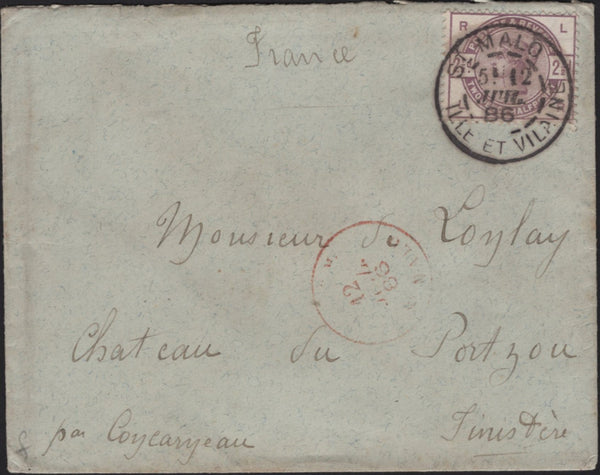 France
R L
ST MALO
5E 12
JUIL
86
ILLE ET VILAINE
Monsieur de Loylay
12
86
Chateau du Portzou
par Concarneau Finistère